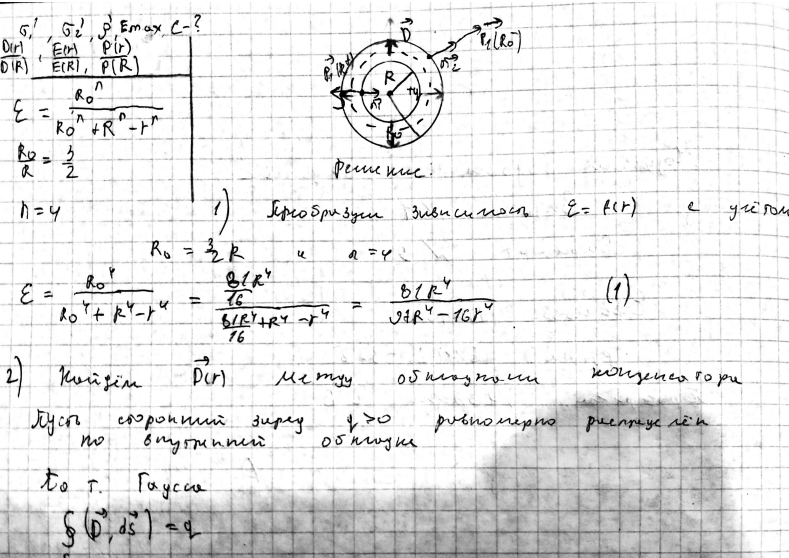 σ₁', σ₂', ρ', Emax, C-?
D(r)/D(R), E(r)/E(R), P(r)/P(R)
ε = R₀ⁿ / (R₀ⁿ + Rⁿ - rⁿ)
R₀/R = 3/2
n = 4
D
P₁(R₀)
σ₂'
R
R₀
Решение:
1) Преобразуем зависимость ε = f(r) с учётом
R₀ = 3/2 R и n = 4
ε = R₀⁴ / (R₀⁴ + R⁴ - r⁴) = (81R⁴/16) / (81R⁴/16 + R⁴ - r⁴) = 81R⁴ / (97R⁴ - 16r⁴) (1)
2) Найдём D(r) между обкладками конденсатора
Пусть сторонний заряд q>0 равномерно распределён
по внутренней обкладке
По т. Гаусса
∮(D, dS) = q